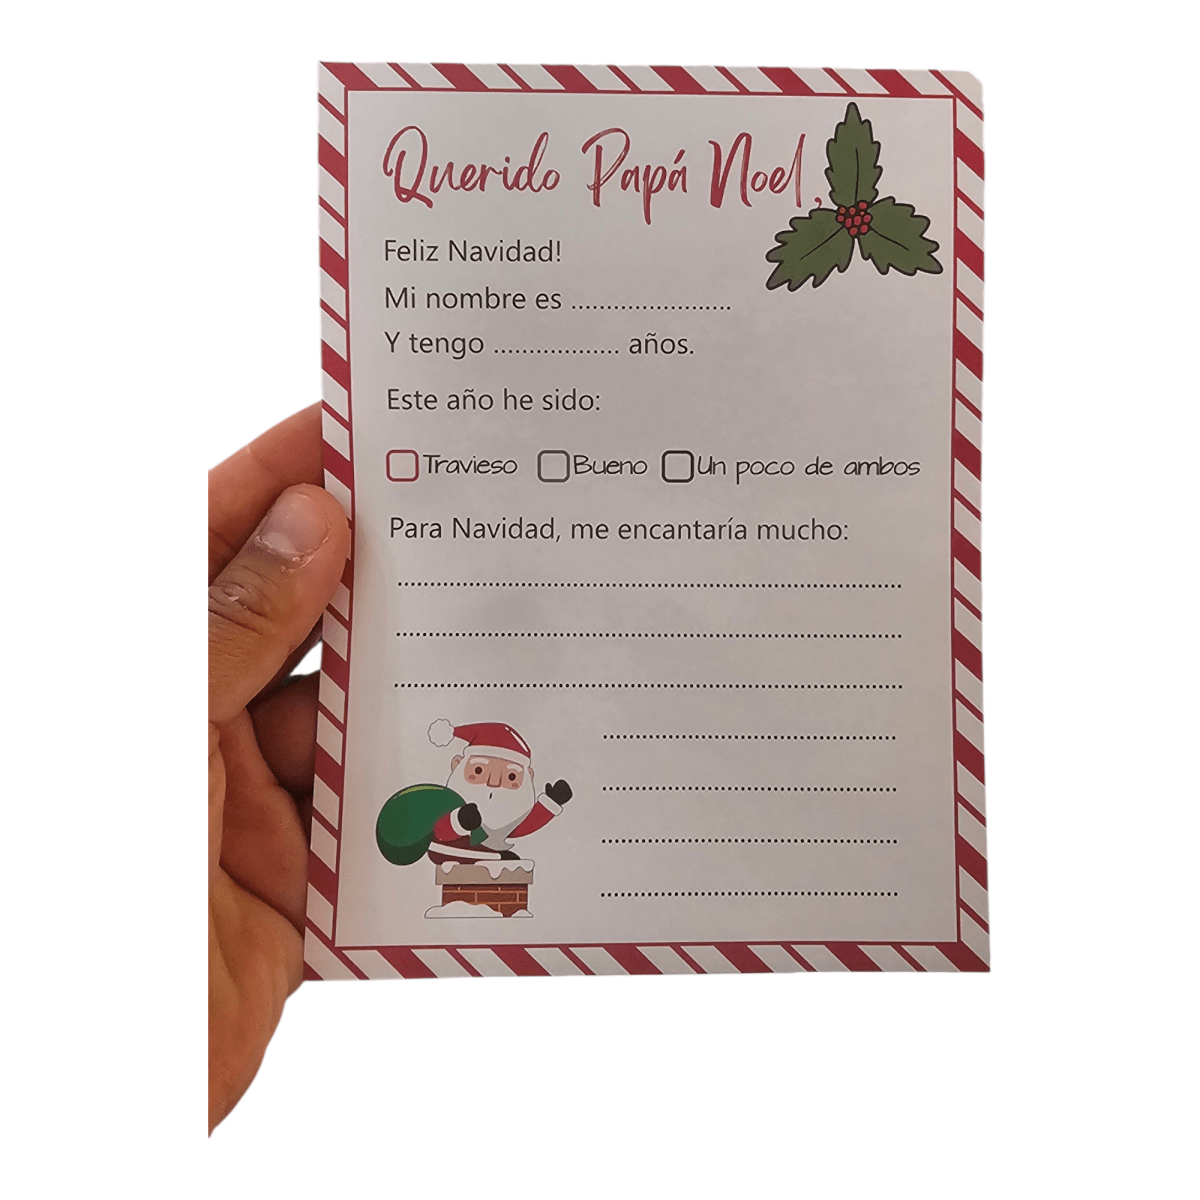 Querido Papá Noel,
Feliz Navidad!
Mi nombre es .......................
Y tengo .................. años.
Este año he sido:
Travieso Bueno Un poco de ambos
Para Navidad, me encantaría mucho: